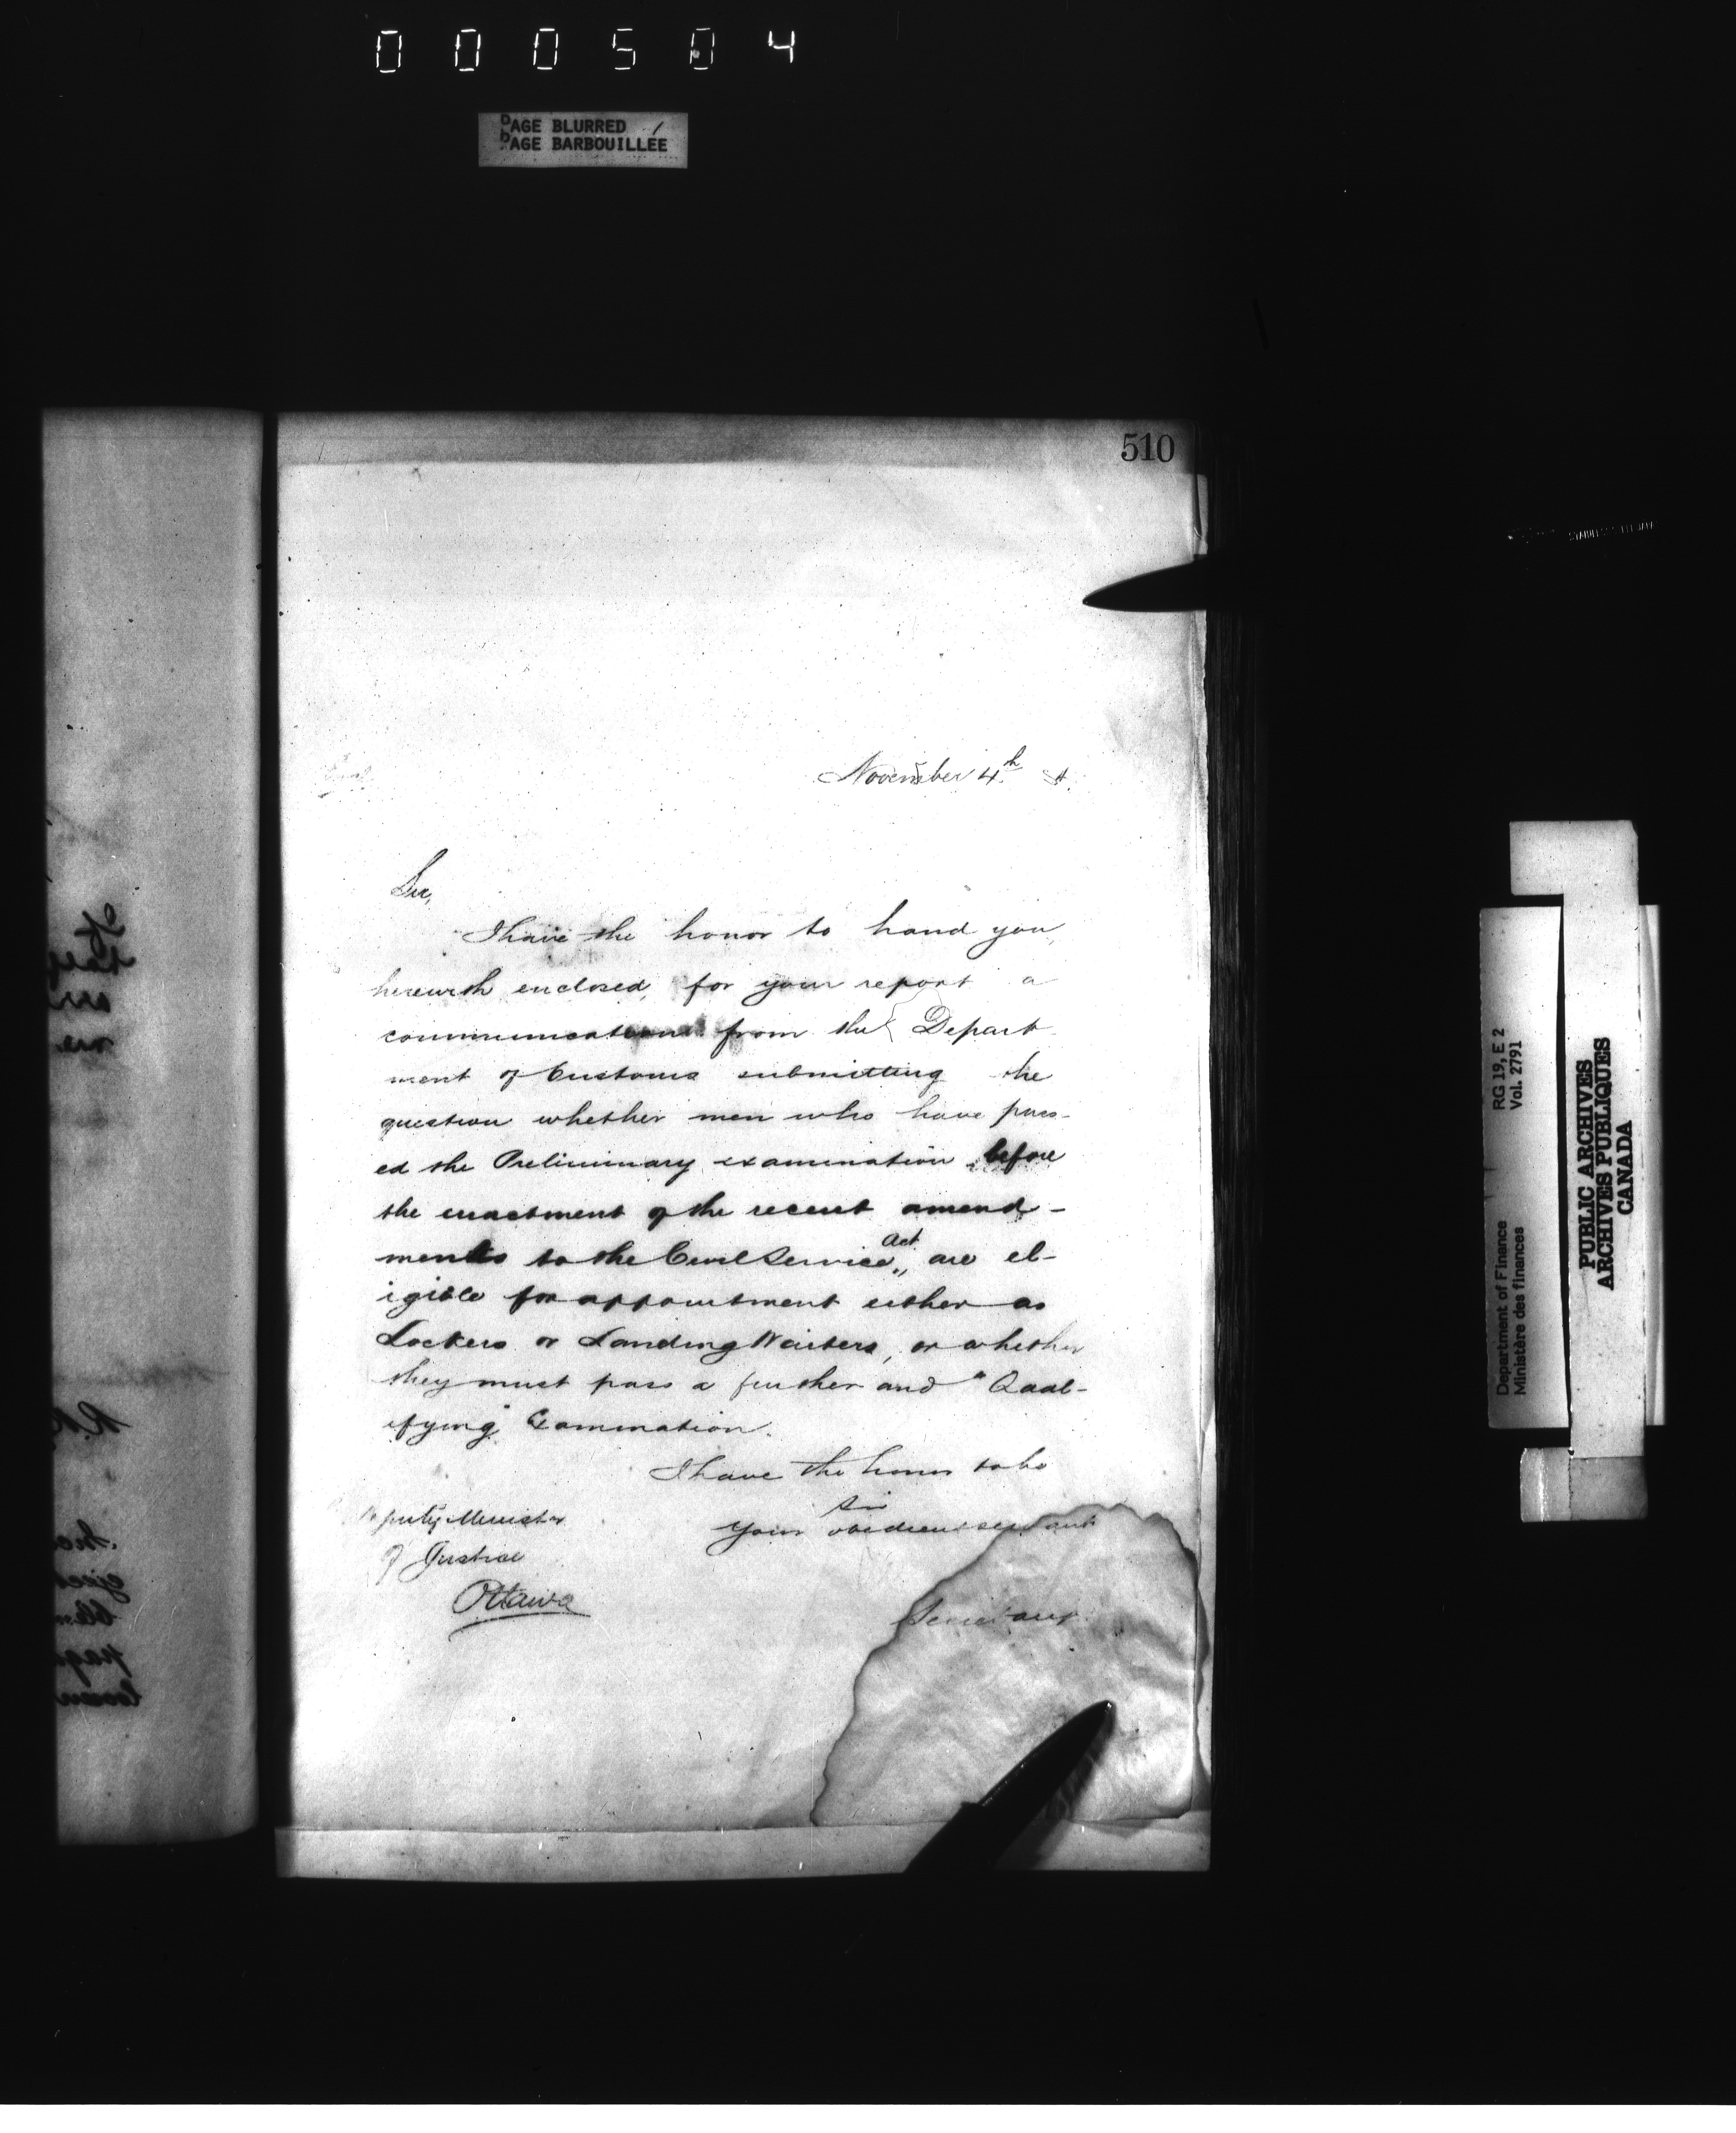 000504
PAGE BLURRED
PAGE BARBOUILLÉE
510
November 4th
Sir,
I have the honor to hand you,
herewith enclosed, for your report a
communication from the Depart
ment of Customs submitting the
question whether men who have pass-
ed the Preliminary examination before
the enactment of the recent amend-
ments to the Civil Service Act, are el-
igible for appointment either as
Lockers or Landing Waiters, or whether
they must pass a further and "Qual-
ifying" Examination.
I have the honor to be
Sir
Your obedient servant
Secretary
Deputy Minister
of Justice
Ottawa
RG 19, E 2
Vol. 2791
Department of Finance
Ministère des finances
PUBLIC ARCHIVES
ARCHIVES PUBLIQUES
CANADA